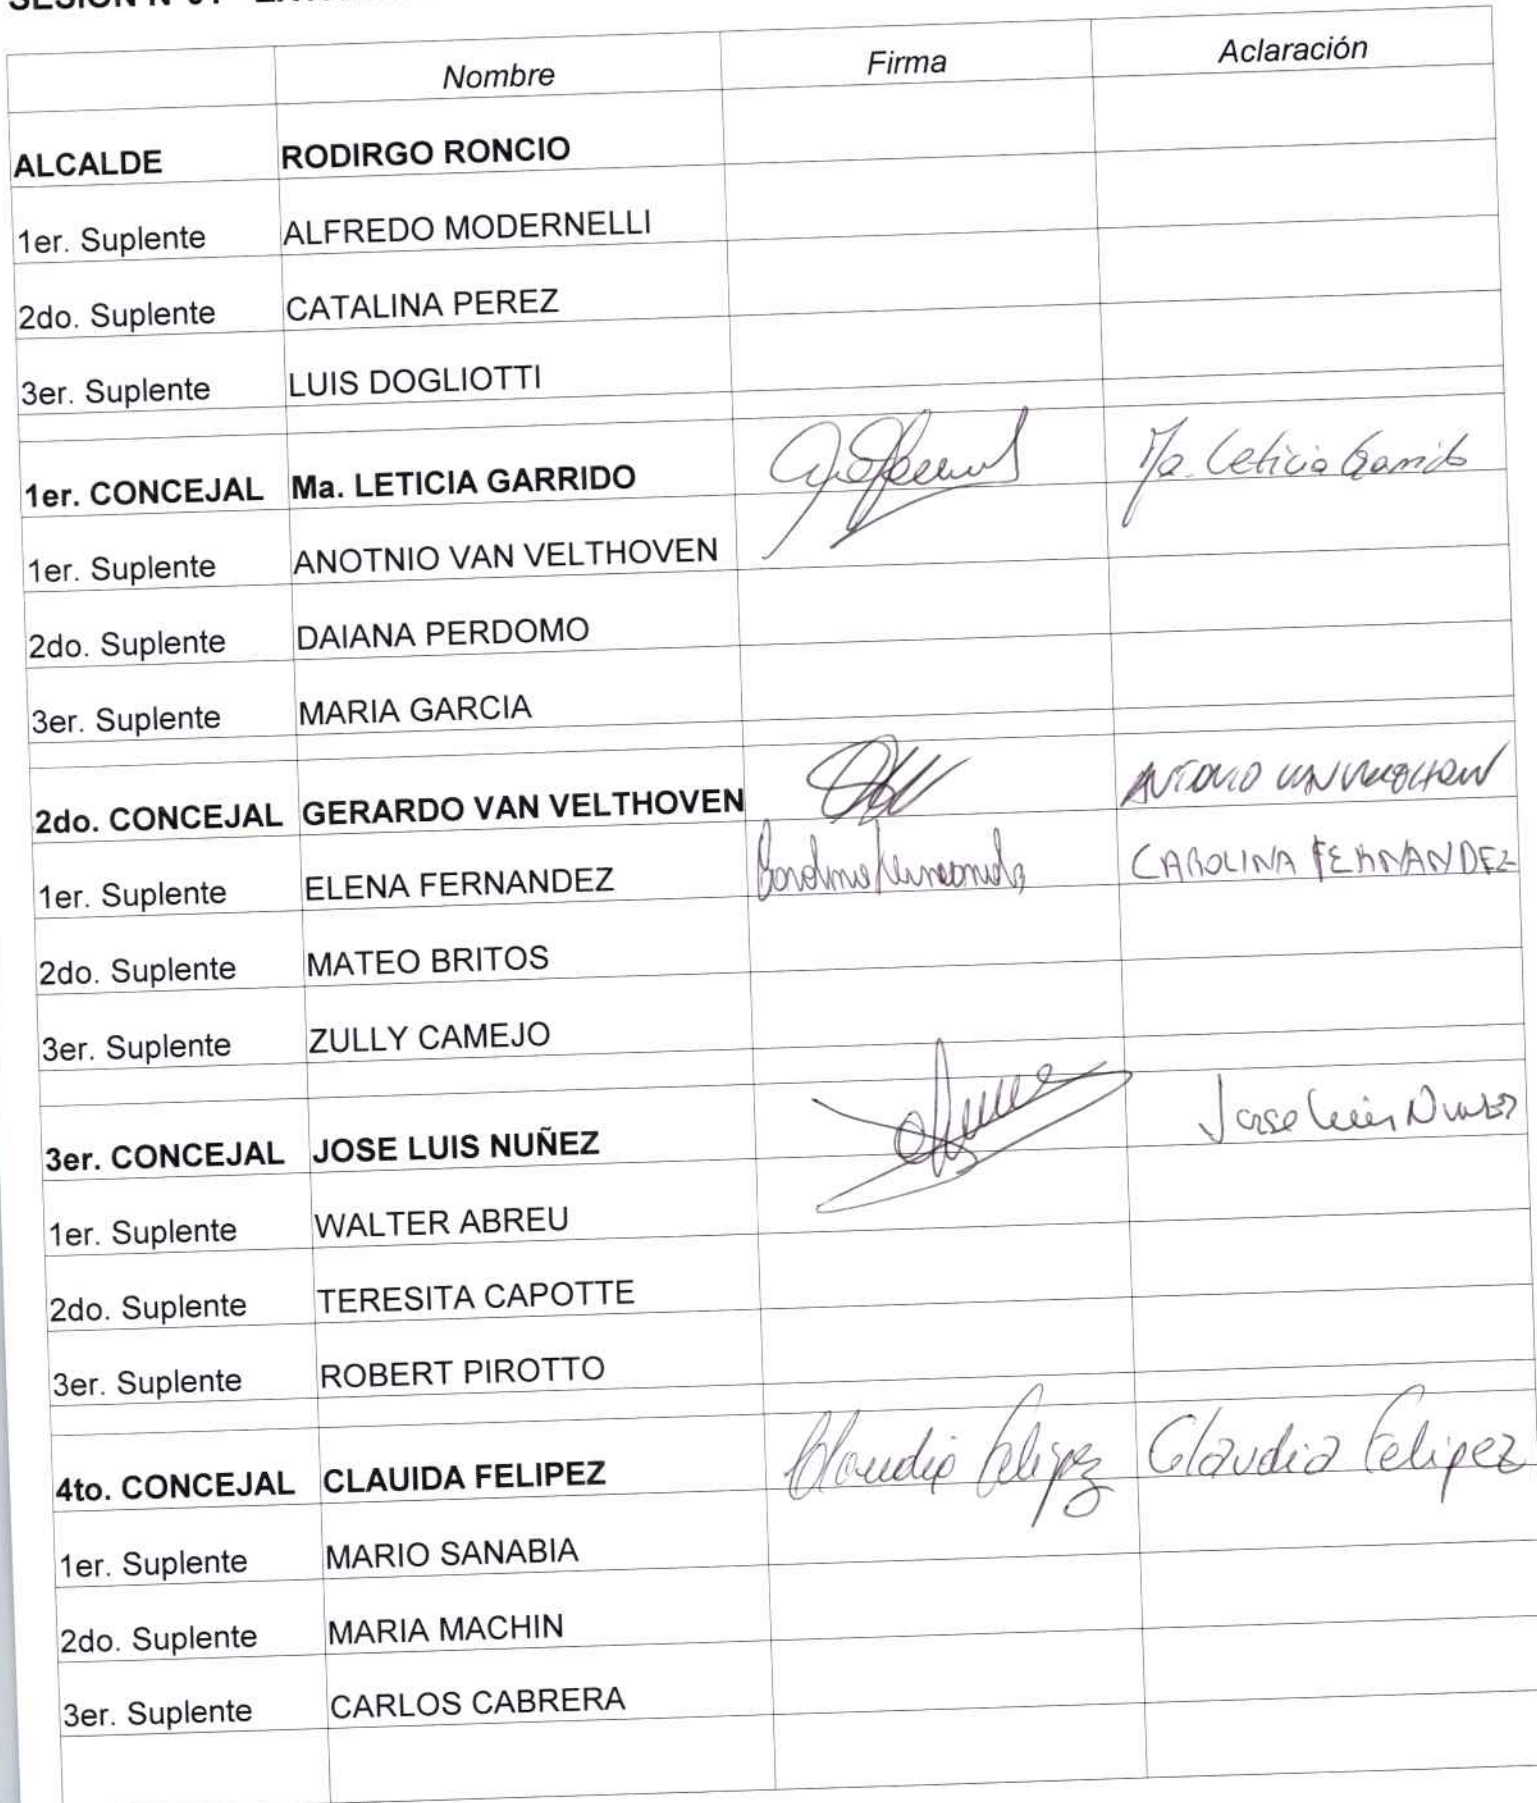 Nombre Firma Aclaración
ALCALDE RODIRGO RONCIO
1er. Suplente ALFREDO MODERNELLI
2do. Suplente CATALINA PEREZ
3er. Suplente LUIS DOGLIOTTI
1er. CONCEJAL Ma. LETICIA GARRIDO Ma. Leticia Garrido
1er. Suplente ANOTNIO VAN VELTHOVEN
2do. Suplente DAIANA PERDOMO
3er. Suplente MARIA GARCIA
2do. CONCEJAL GERARDO VAN VELTHOVEN ANTONIO VAN VELTHOVEN
1er. Suplente ELENA FERNANDEZ Carolina Fernandez CAROLINA FERNANDEZ
2do. Suplente MATEO BRITOS
3er. Suplente ZULLY CAMEJO
3er. CONCEJAL JOSE LUIS NUÑEZ Jose Luis Nuñez
1er. Suplente WALTER ABREU
2do. Suplente TERESITA CAPOTTE
3er. Suplente ROBERT PIROTTO
4to. CONCEJAL CLAUIDA FELIPEZ Claudia Felipez Claudia Felipez
1er. Suplente MARIO SANABIA
2do. Suplente MARIA MACHIN
3er. Suplente CARLOS CABRERA